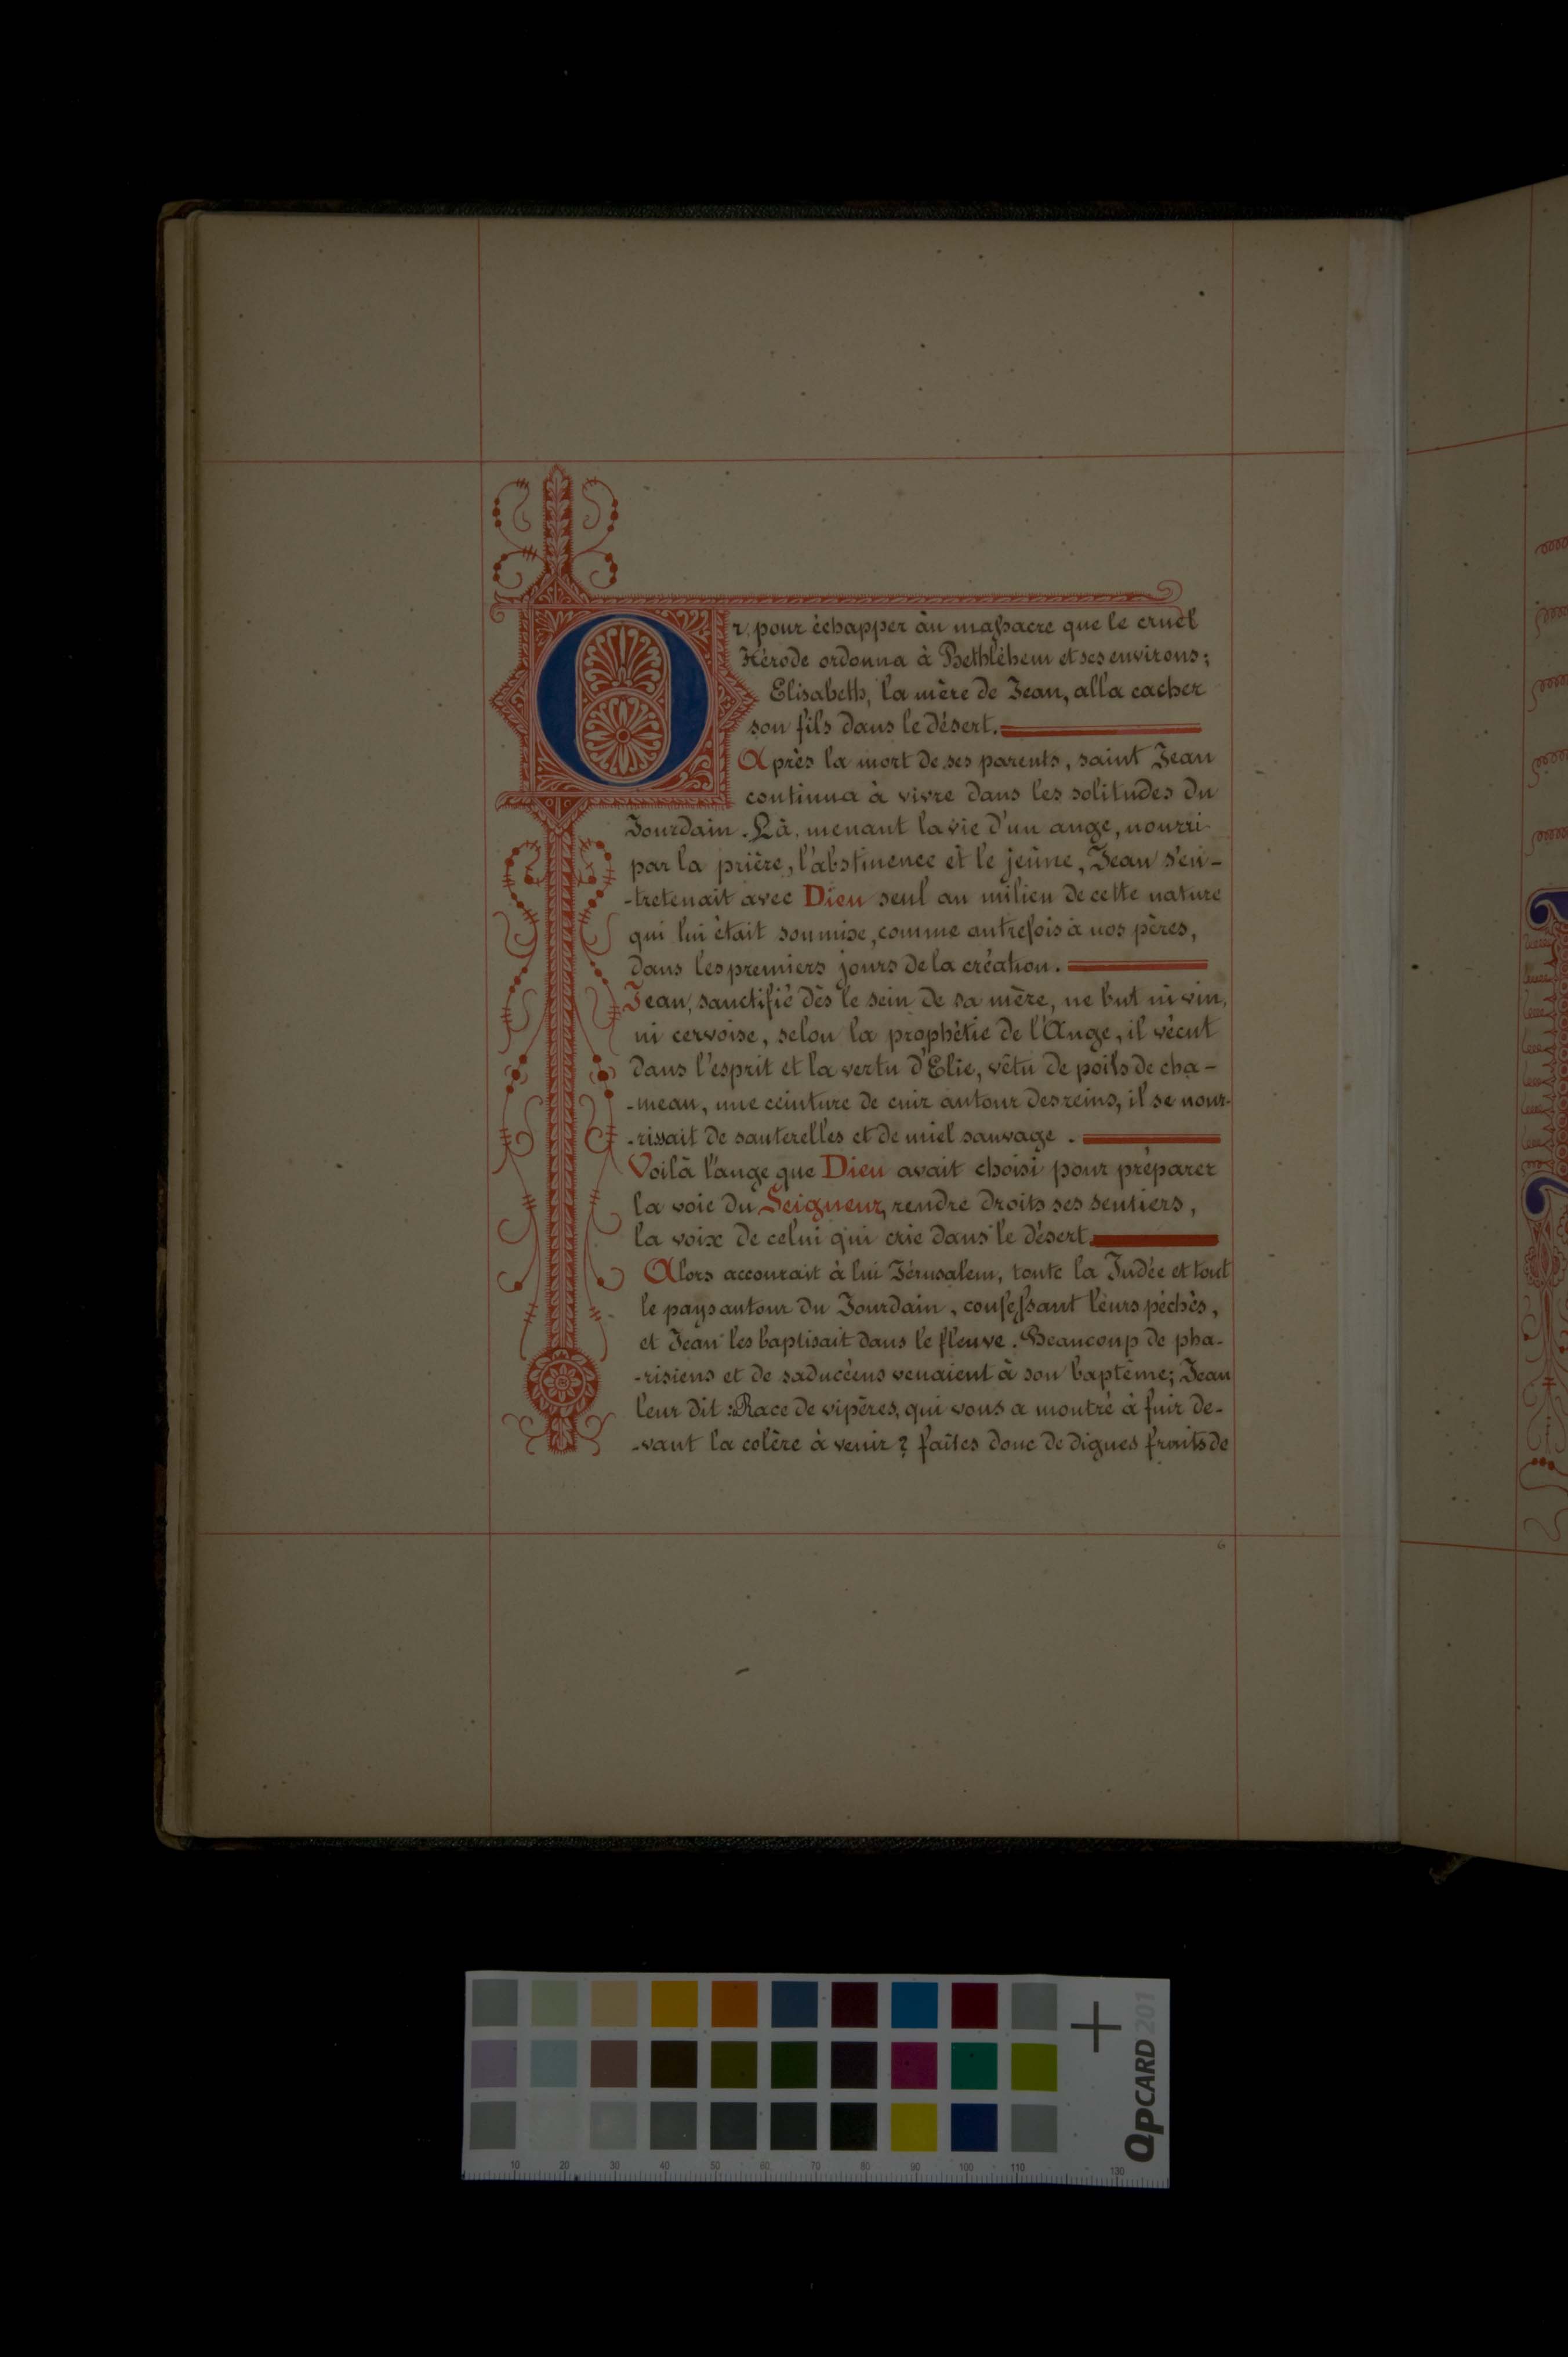 Or, pour échapper au massacre que le cruel
Hérode ordonna à Bethléhem et ses environs;
Elisabeth, la mère de Jean, alla cacher
son fils dans le désert.
Après la mort de ses parents, saint Jean
continua à vivre dans les solitudes du
Jourdain. Là, menant la vie d'un ange, nourri
par la prière, l'abstinence et le jeûne, Jean s'en-
-tretenait avec Dieu seul au milieu de cette nature
qui lui était soumise, comme autrefois à nos pères,
dans les premiers jours de la création.
Jean, sanctifié dès le sein de sa mère, ne but ni vin,
ni cervoise, selon la prophétie de l'Ange, il vécut
dans l'esprit et la vertu d'Elie, vêtu de poils de cha-
-meau, une ceinture de cuir autour des reins, il se nour-
-rissait de sauterelles et de miel sauvage.
Voilà l'ange que Dieu avait choisi pour préparer
la voie du Seigneur, rendre droits ses sentiers,
la voix de celui qui crie dans le désert.
Alors accourait à lui Jérusalem, toute la Judée et tout
le pays autour du Jourdain, confessant leurs péchés,
et Jean les baptisait dans le fleuve. Beaucoup de pha-
-risiens et de saducéens venaient à son baptême; Jean
leur dit : Race de vipères, qui vous a montré à fuir de-
-vant la colère à venir ? faites donc de dignes fruits de
6
QPCARD 201
10 20 30 40 50 60 70 80 90 100 110 130